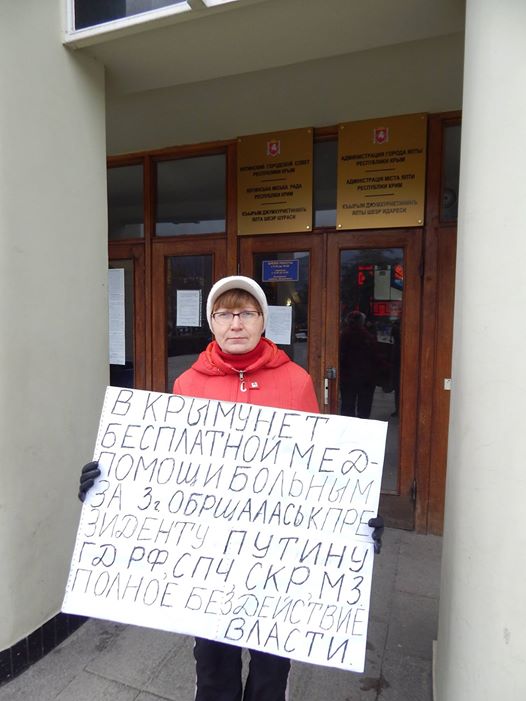 ЯЛТИНСКИЙ ГОРОДСКОЙ СОВЕТ
РЕСПУБЛИКИ КРЫМ
ЯЛТИНСЬКА МІСЬКА РАДА
РЕСПУБЛІКИ КРИМ
КЪЫРЫМ ДЖУМХУРИЕТИНИНЪ
ЯЛТА ШЕЭР ШУРАСЫ
АДМИНИСТРАЦИЯ ГОРОДА ЯЛТЫ
РЕСПУБЛИКИ КРЫМ
АДМІНІСТРАЦІЯ МІСТА ЯЛТИ
РЕСПУБЛІКИ КРИМ
КЪЫРЫМ ДЖУМХУРИЕТИНИНЪ
ЯЛТЫ ШЕЭР ИДАРЕСИ
В КРЫМУ НЕТ
БЕСПЛАТНОЙ МЕД-
ПОМОЩИ БОЛЬНЫМ
ЗА 3г ОБРЩАЛАСЬ К ПРЕ
ЗИДЕНТУ ПУТИНУ
ГД РФ, СПЧ, СКР, МЗ
ПОЛНОЕ БЕЗДЕЙСТВИЕ
ВЛАСТИ.